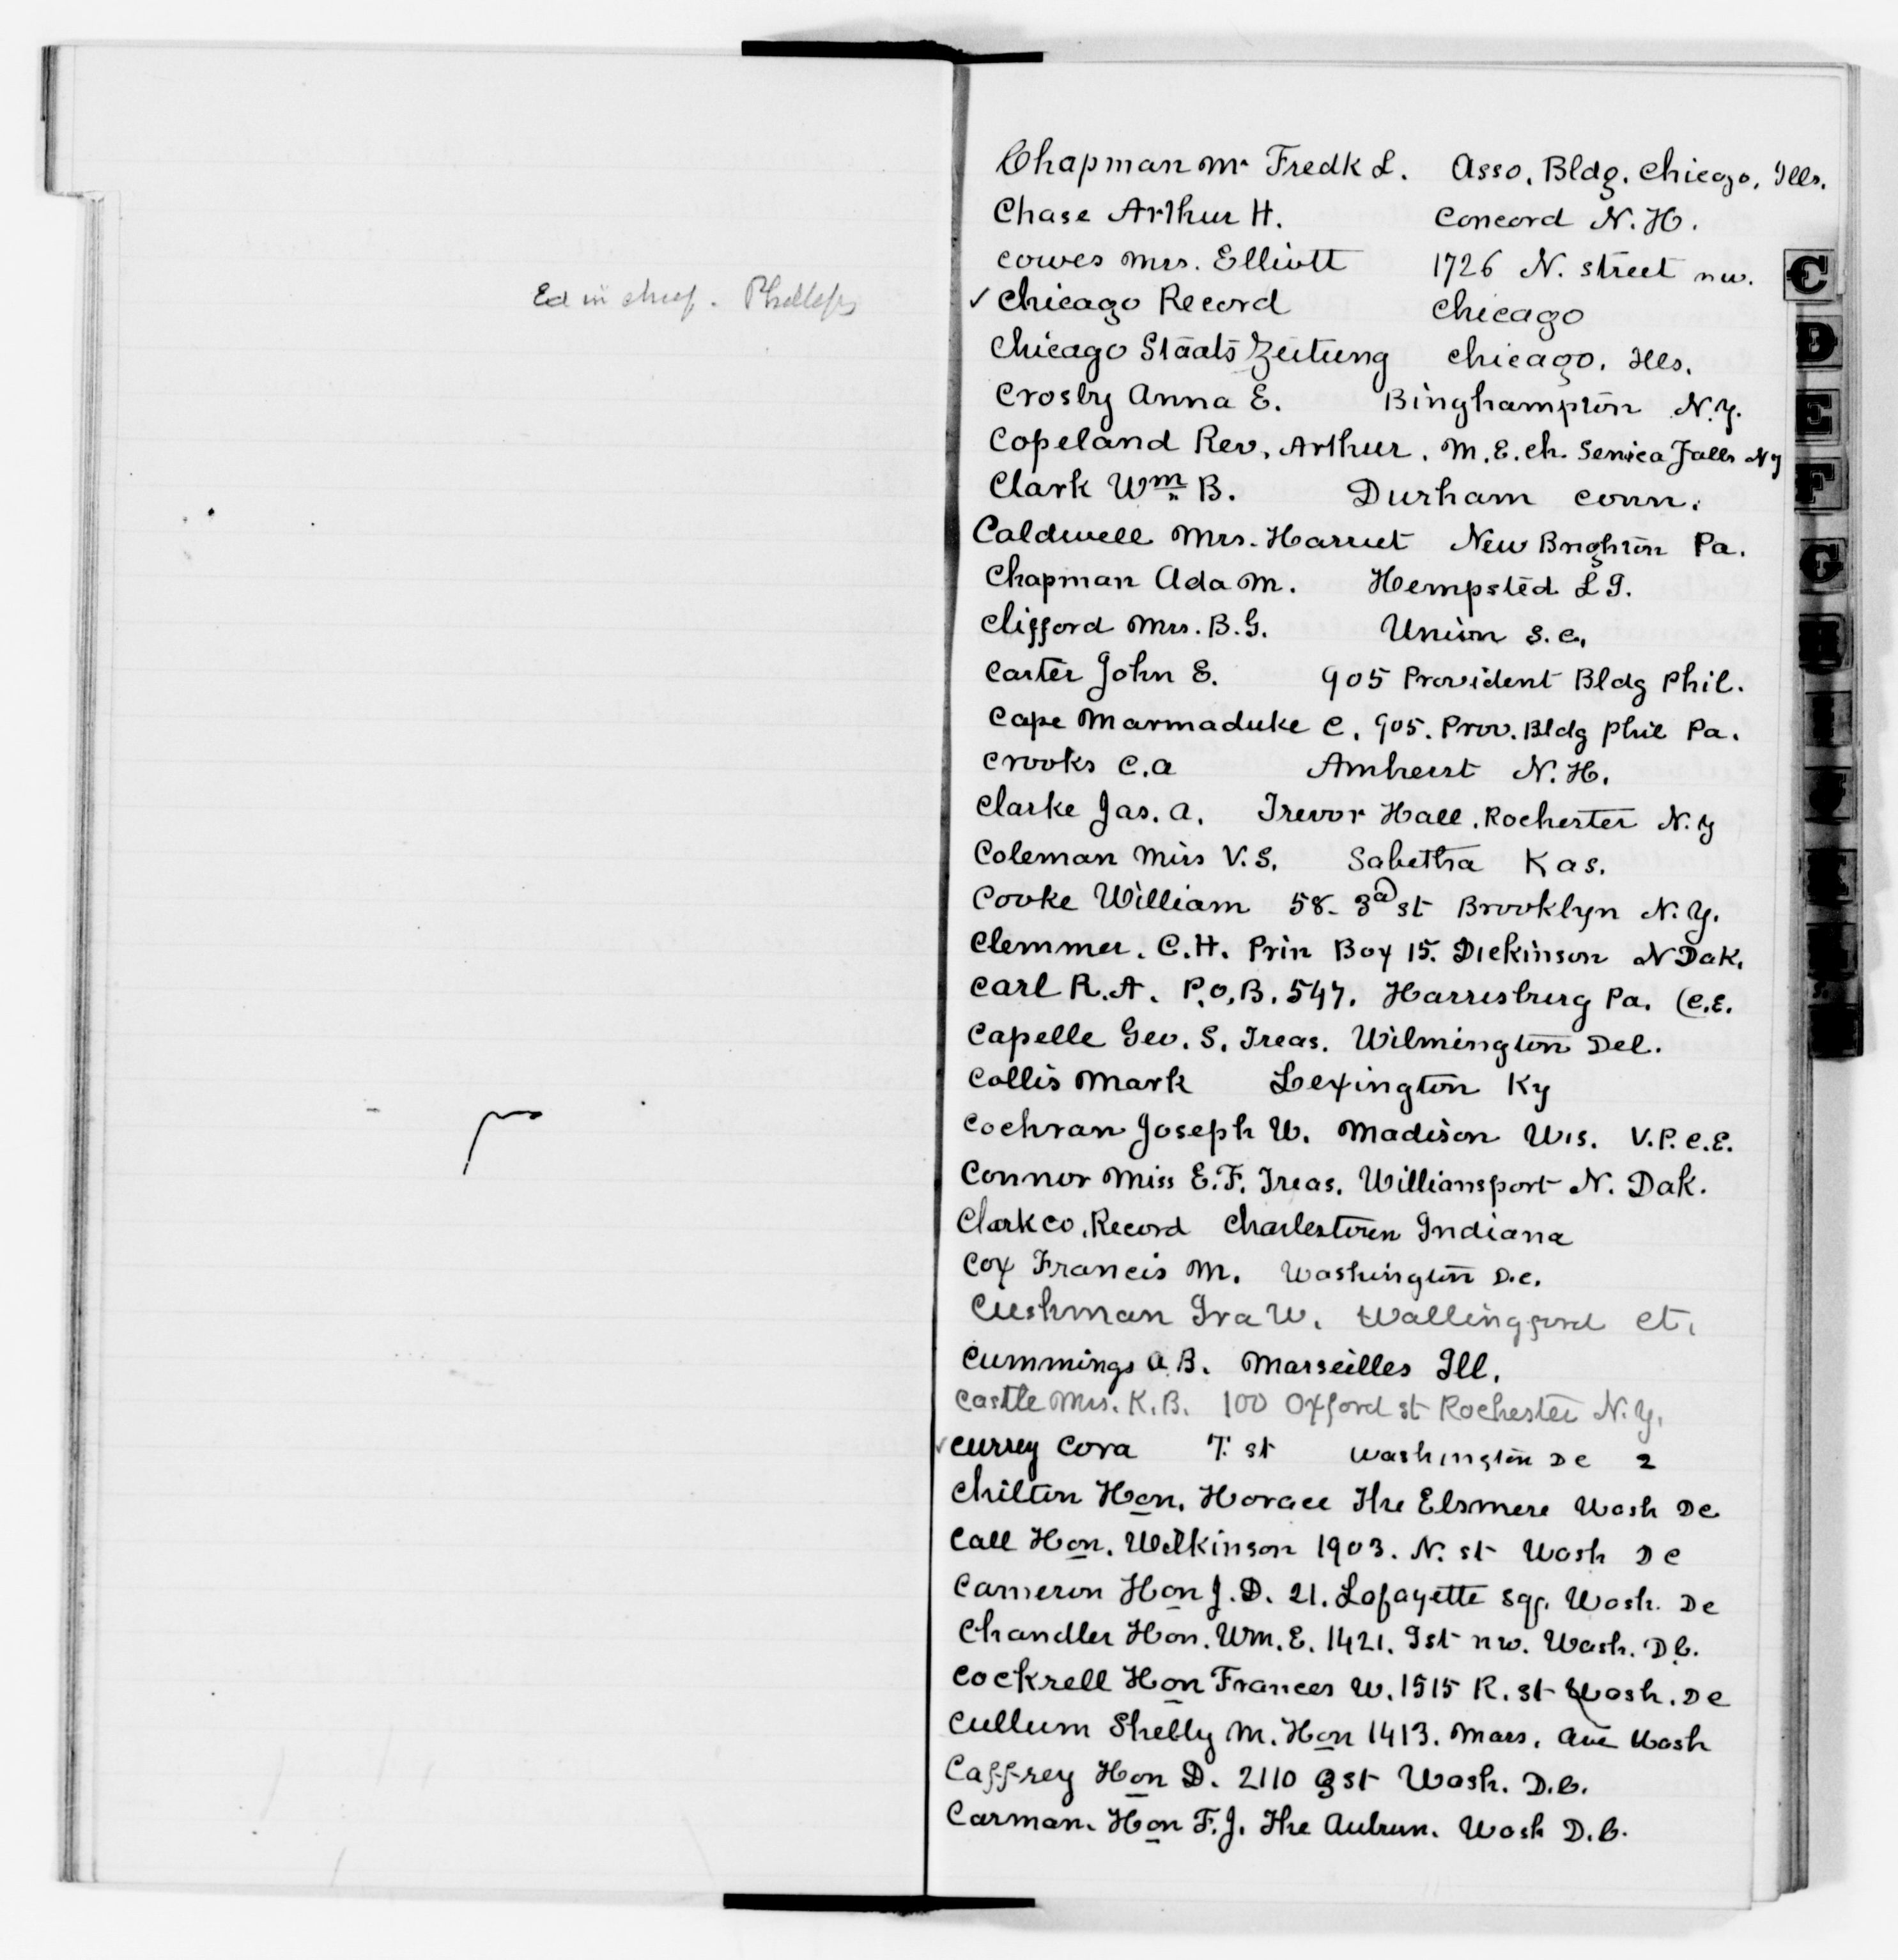 Ed in chief. Phillips
Chapman Mr Fredk L. Asso. Bldg. Chicago, Ills.
Chase Arthur H. Concord N. H.
Cowes Mrs. Elliott 1726 N. street nw.
✓ Chicago Record Chicago
Chicago Staats Zeitung Chicago, Ills.
Crosby Anna E. Binghampton N.Y.
Copeland Rev. Arthur. M.E. Ch. Senica Falls NY
Clark Wm B. Durham Conn.
Caldwell Mrs. Harriet New Brighton Pa.
Chapman Ada M. Hempsted L I.
Clifford Mrs. B.G. Union S.C.
Carter John E. 905 Provident Bldg Phil.
Cape Marmaduke C. 905. Prov. Bldg Phil Pa.
Crooks C.A Amherst N.H.
Clarke Jas. A. Trevor Hall. Rochester N.Y
Coleman Miss V.S. Sabetha Kas.
Cooke William 58- 3d st Brooklyn N.Y.
Clemmer. C.H. Prin Box 15. Dickinson N Dak.
Carl R.A. P.O.B. 547. Harrisburg Pa. (C.E.
Capelle Geo. S. Treas. Wilmington Del.
Collis Mark Lexington Ky
Cochran Joseph W. Madison Wis. V.P.C.E.
Connor Miss E.F. Treas. Williamsport N. Dak.
Clark Co. Record Charlestown Indiana
Cox Francis M. Washington D.C.
Cushman Ira W. Wallingford Ct.
Cummings A.B. Marseilles Ill.
Castle Mrs. K.B. 100 Oxford st Rochester N.Y.
✓ Currey Cora T. st Washington DC 2
Chilton Hon. Horace The Elsmere Wash DC
Call Hon. Wilkinson 1903. N. st Wash DC
Cameron Hon J.D. 21. Lafayette sqr. Wash. DC
Chandler Hon. Wm. E. 1421. I st nw. Wash. D.C.
Cockrell Hon Frances W. 1515 R. st Wash. DC
Cullum Shelby M. Hon 1413. Mass. Ave Wash
Caffrey Hon D. 2110 G st Wash. D.C.
Carman. Hon F.J. The Auburn. Wash D.C.
C
D
E
F
G
H
I
J
K